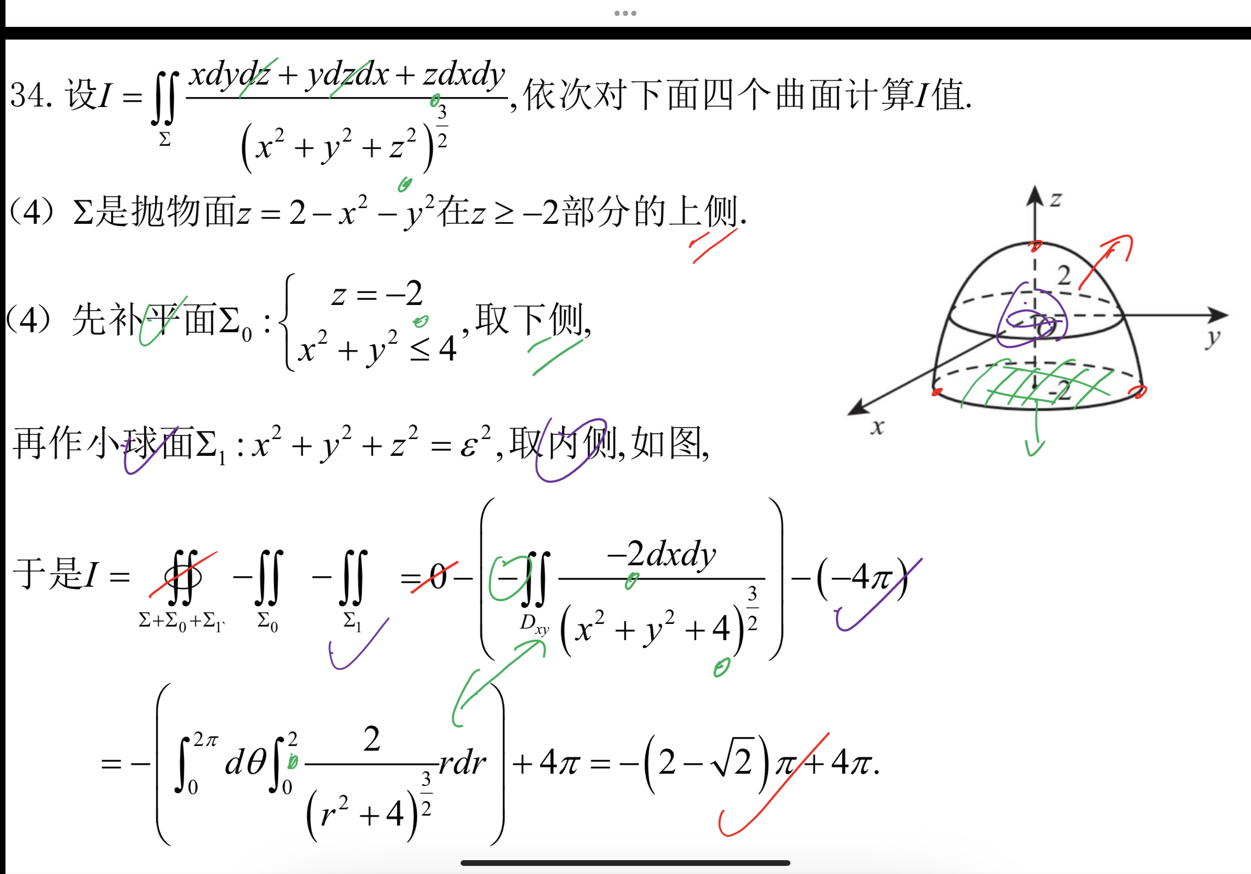 34. 设I = ∬_Σ (xdydz + ydzdx + zdxdy) / (x² + y² + z²)^{3/2}, 依次对下面四个曲面计算I值.
(4) Σ是抛物面z = 2 − x² − y²在z ≥ −2部分的上侧.
(4) 先补平面Σ₀ : { z = −2, x² + y² ≤ 4, 取下侧,
再作小球面Σ₁ : x² + y² + z² = ε², 取内侧, 如图,
于是I = ∯_{Σ+Σ₀+Σ₁} − ∬_{Σ₀} − ∬_{Σ₁} = 0 − ( −∬_{D_{xy}} −2dxdy / (x² + y² + 4)^{3/2} ) − (−4π)
= −( ∫₀^{2π} dθ ∫₀² 2 / (r² + 4)^{3/2} rdr ) + 4π = −(2 − √2)π + 4π.
z
2
O
y
-2
x